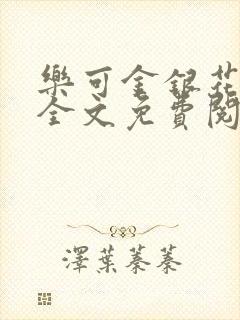 樂可金銀花
全文免費閱
澤葉蓁蓁